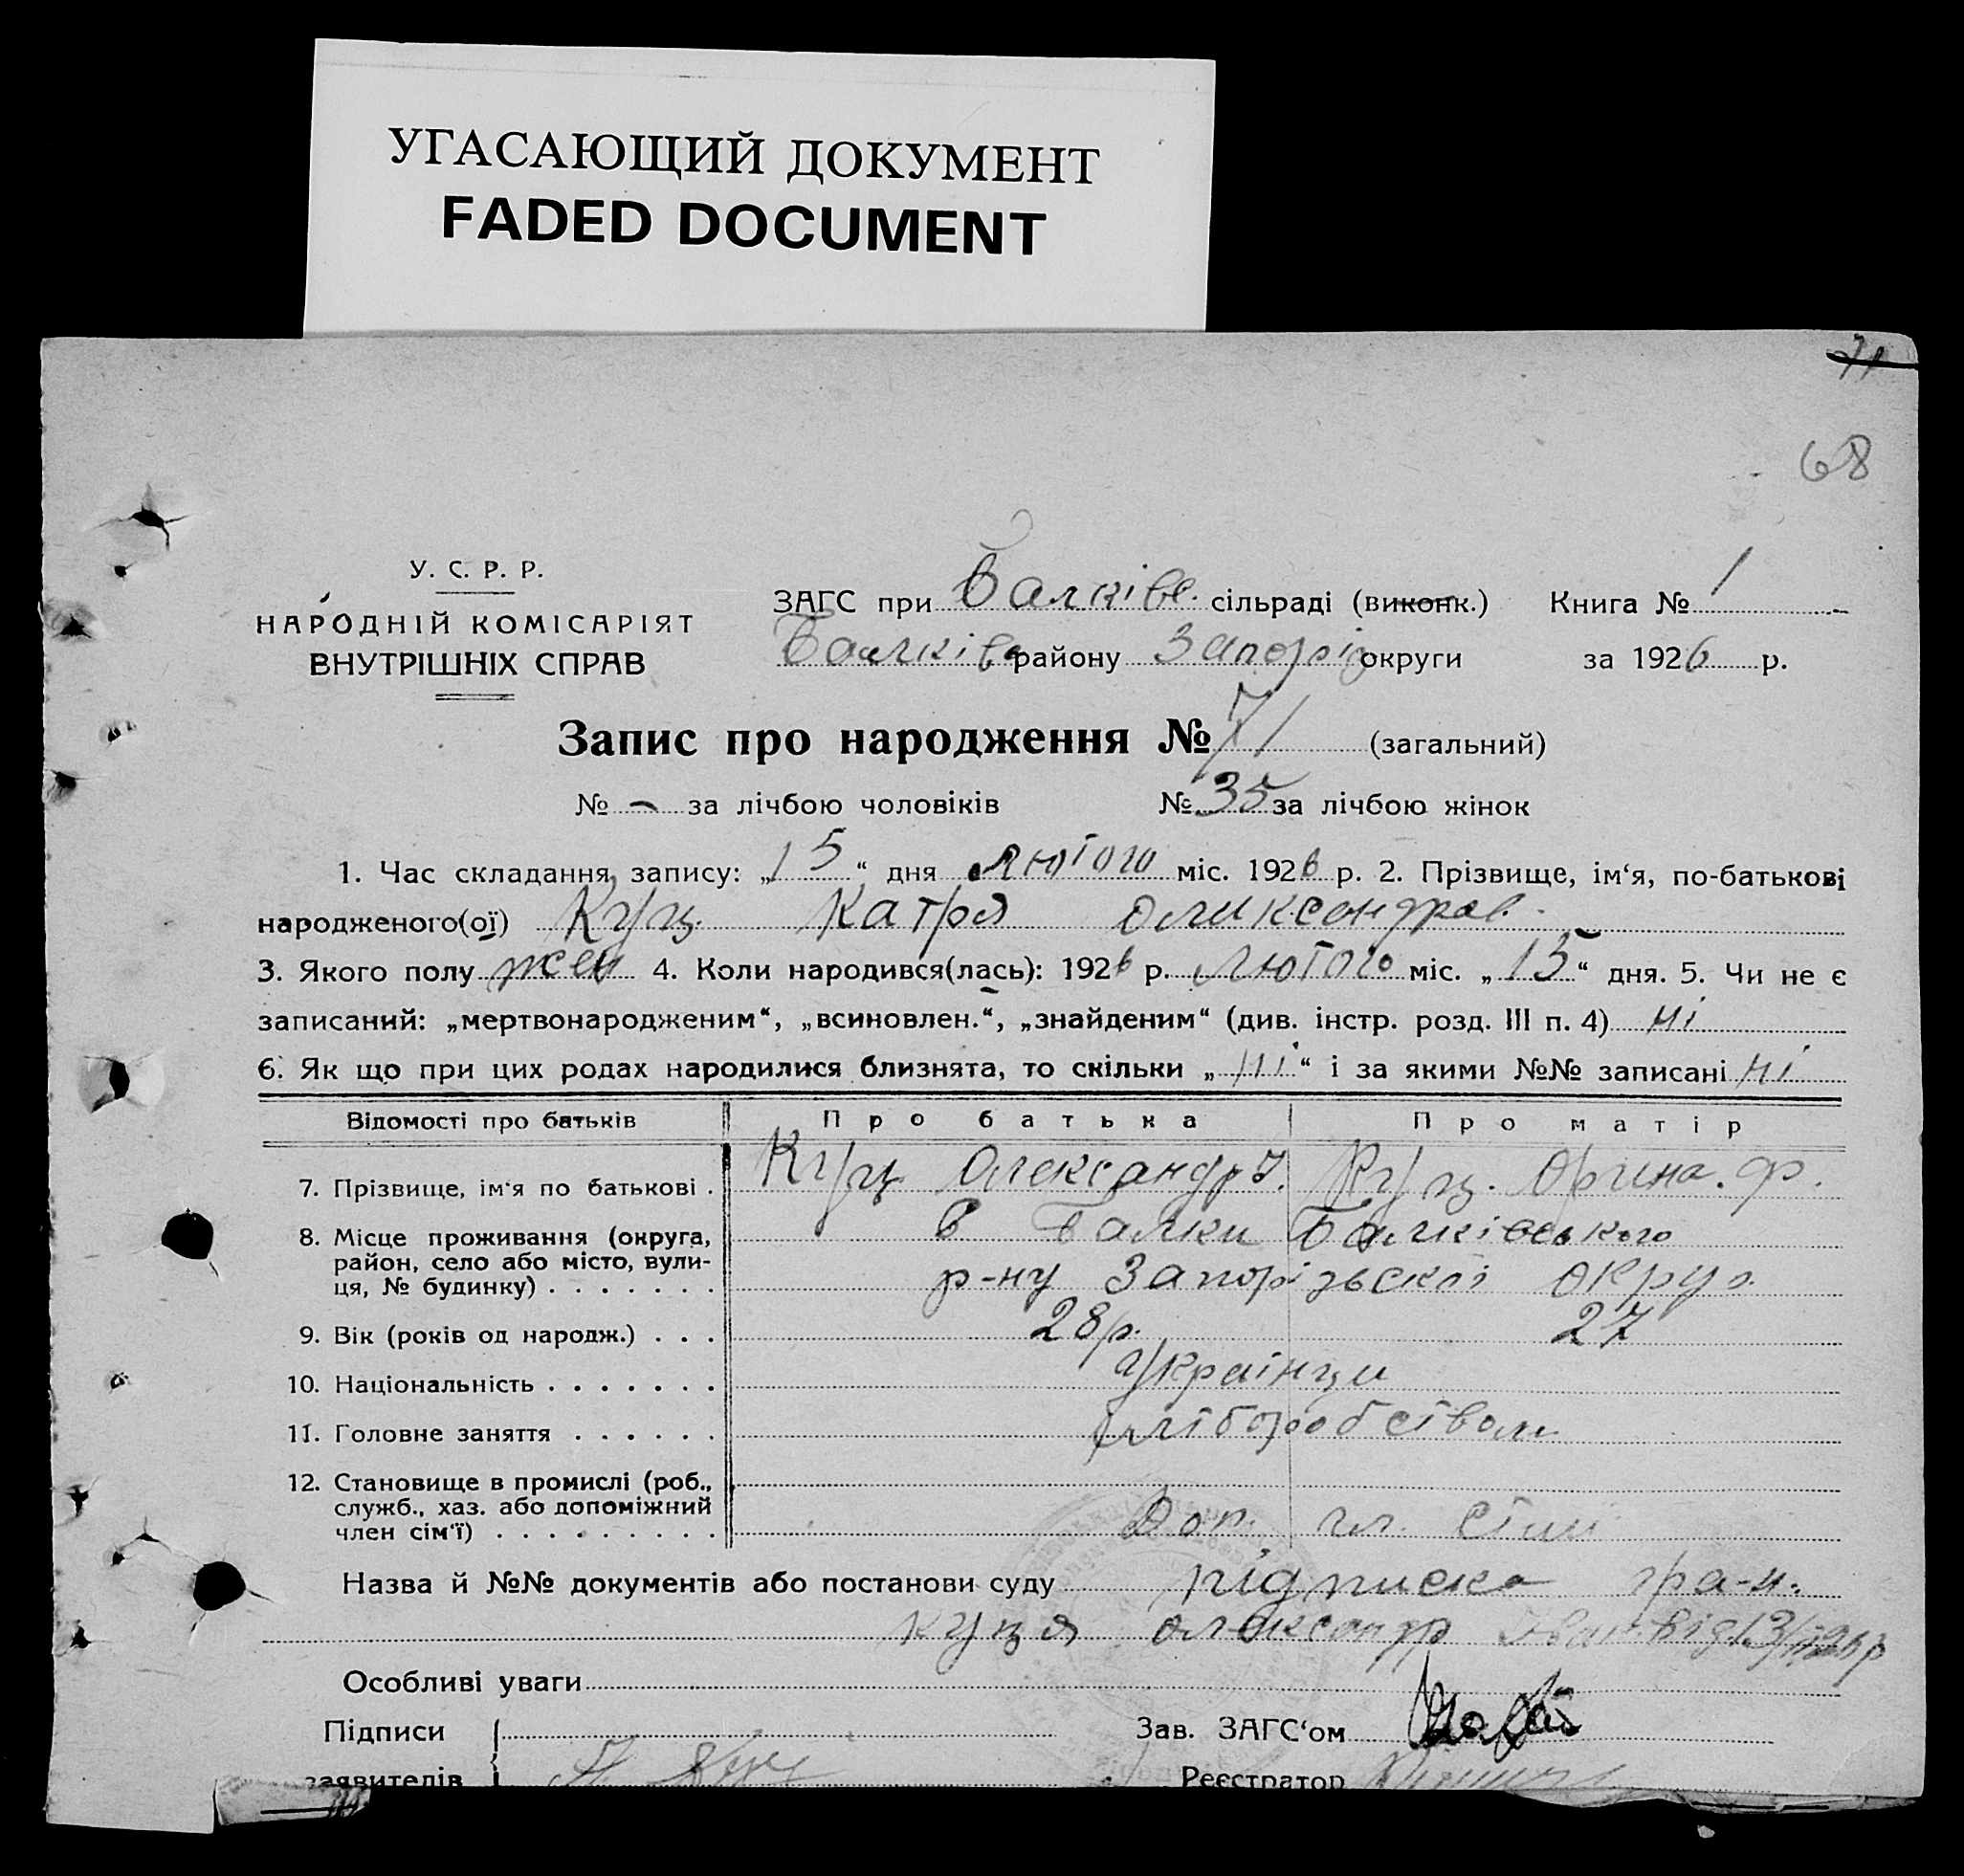 УГАСАЮЩИЙ ДОКУМЕНТ
FADED DOCUMENT
71
68
У. С. Р. Р.
НАРОДНІЙ КОМІСАРІЯТ
ВНУТРІШНІХ СПРАВ
ЗАГС при Балківс. сільраді (виконк.) Книга № 1
Балків району Запоріз округи за 1926 р.
Запис про народження № 71 (загальний)
№ - за лічбою чоловіків № 35 за лічбою жінок
1. Час складання запису: „15“ дня Лютого міс. 1926 р. 2. Прізвище, ім‘я, по-батькові
народженого(ої) Куц Катря Олександров.
3. Якого полу жен 4. Коли народився(лась): 1926 р. Лютого міс. „15“ дня. 5. Чи не є
записаний: „мертвонародженим“, „всиновлен.“, „знайденим“ (див. інстр. розд. III п. 4) ні
6. Як що при цих родах народилися близнята, то скільки „ні“ і за якими №№ записані ні
Відомості про батьків Про батька Про матір
7. Прізвище, ім‘я по батькові . Куц Олександр І. Куц. Орина. Ф.
8. Місце проживання (округа, в Балки Балківського
район, село або місто, вули-
ця, № будинку) . . . . . . . р-ну Запорізьскоі округ.
9. Вік (років од народж.) . . . 28р. 27
10. Національність . . . . . . . Украінци
11. Головне заняття . . . . . . хліборобством
12. Становище в промислі (роб.,
служб., хаз. або допоміжний
член сім‘ї) . . . . . . . . . Доп. чл. сімі
Назва й №№ документів або постанови суду підписка гра-н.
Куця Олександр Іван від 13/
Особливі уваги
Підписи Зав. ЗАГС‘ом
заявителів Реєстратор